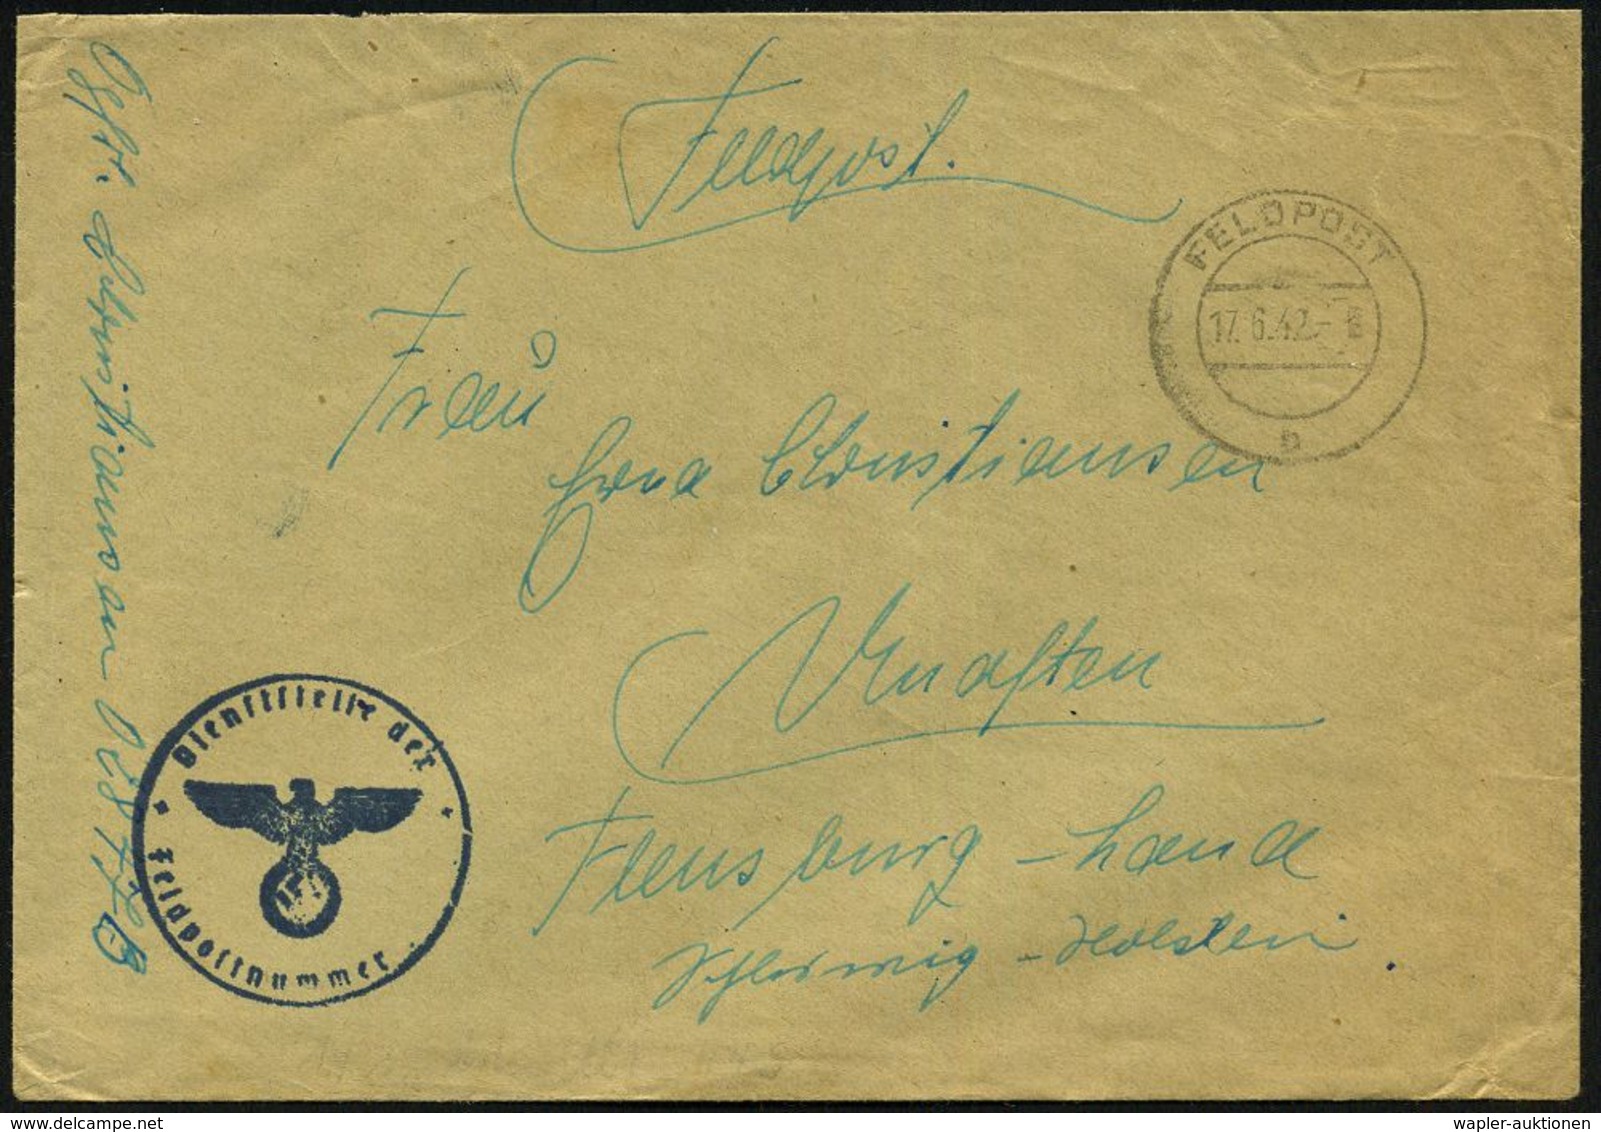 Feldpost.
FELDPOST
17.6.42.-
b
Frau
Christiansen
Flensburg - Land
Schleswig - Holstein.
Christiansen
Dienststelle der
Feldpostnummer
wapler-auktionen